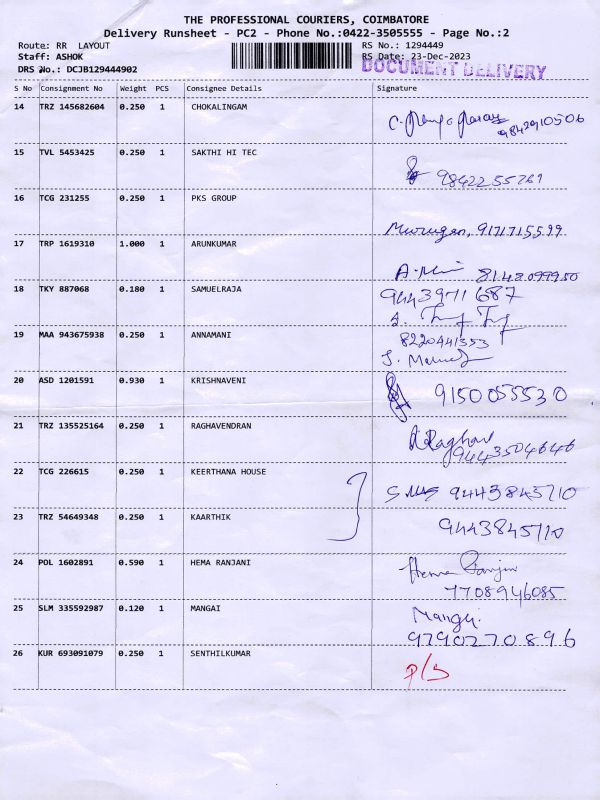 THE PROFESSIONAL COURIERS, COIMBATORE
Delivery Runsheet - PC2 - Phone No.:0422-3505555 - Page No.:2
Route: RR LAYOUT RS No.: 1294449
Staff: ASHOK RS Date: 23-Dec-2023
DRS No.: DCJB129444902 DOCUMENT DELIVERY
S No Consignment No Weight PCS Consignee Details Signature
14 TRZ 145682604 0.250 1 CHOKALINGAM
9842910506
15 TVL 5453425 0.250 1 SAKTHI HI TEC
9842255761
16 TCG 231255 0.250 1 PKS GROUP
Murugan, 9171715599
17 TRP 1619310 1.000 1 ARUNKUMAR
8148099950
18 TKY 887068 0.180 1 SAMUELRAJA
9443971687
19 MAA 943675938 0.250 1 ANNAMANI
8220441353
20 ASD 1201591 0.930 1 KRISHNAVENI
9150055530
21 TRZ 135525164 0.250 1 RAGHAVENDRAN
9443504646
22 TCG 226615 0.250 1 KEERTHANA HOUSE
9443845710
23 TRZ 54649348 0.250 1 KAARTHIK
9443845710
24 POL 1602891 0.590 1 HEMA RANJANI
Hema Ranjini
7708946085
25 SLM 335592987 0.120 1 MANGAI
Mangai
9790270896
26 KUR 693091079 0.250 1 SENTHILKUMAR
P/S